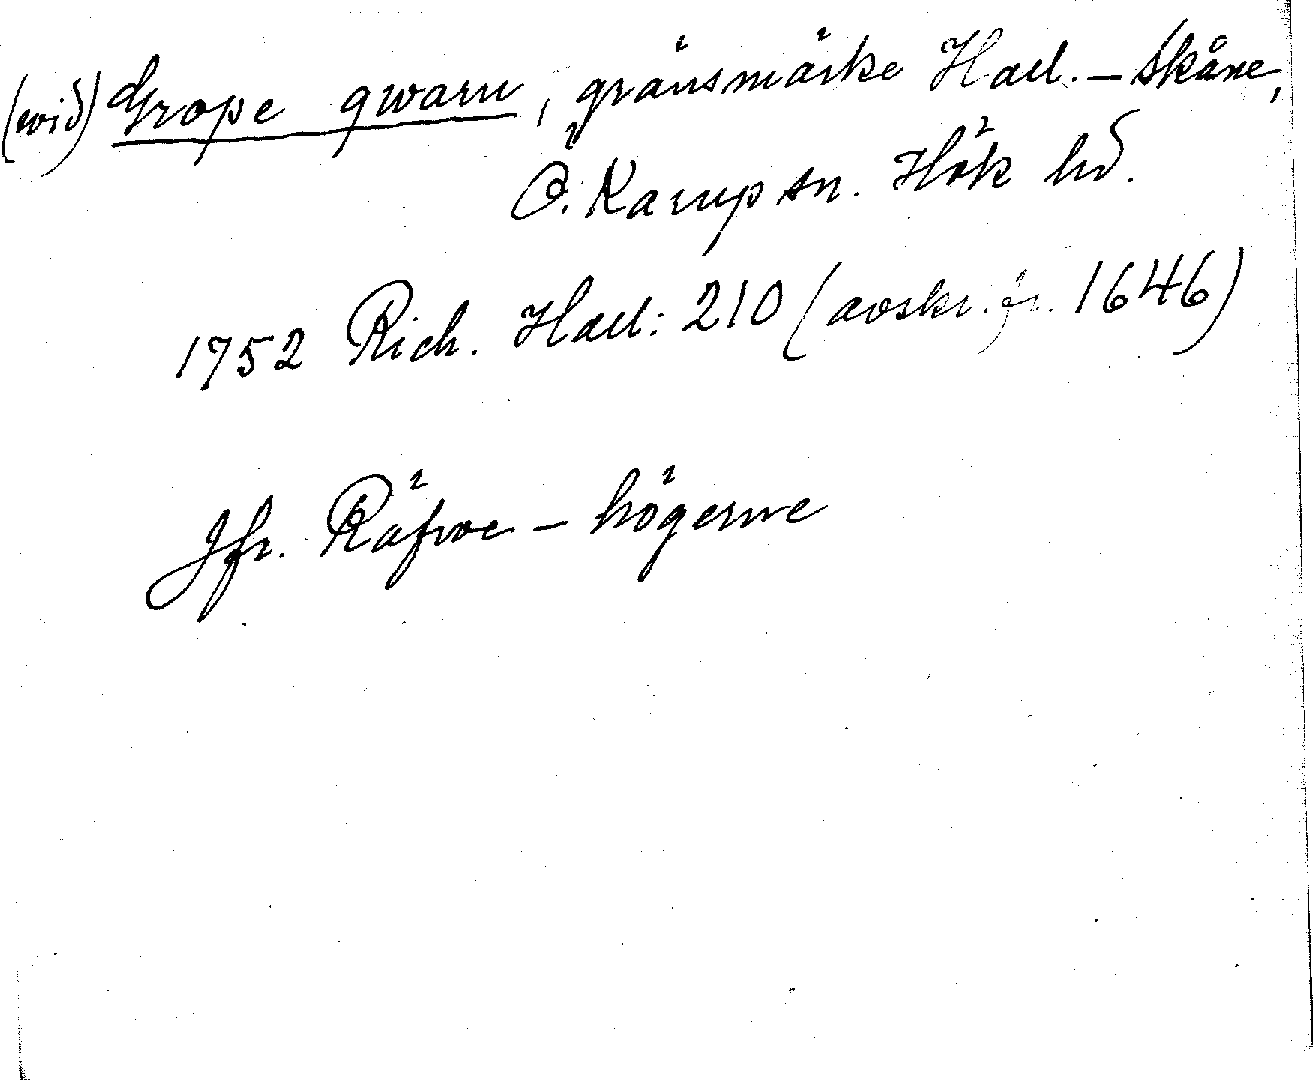 (wid) Grope qwarn, gränsmärke Hall. – Skåne,
Ö. Karup sn. Hök hd.
1752 Rich. Hall: 210 (avskr. fr. 1646)
Jfr. Räfwe – högerne